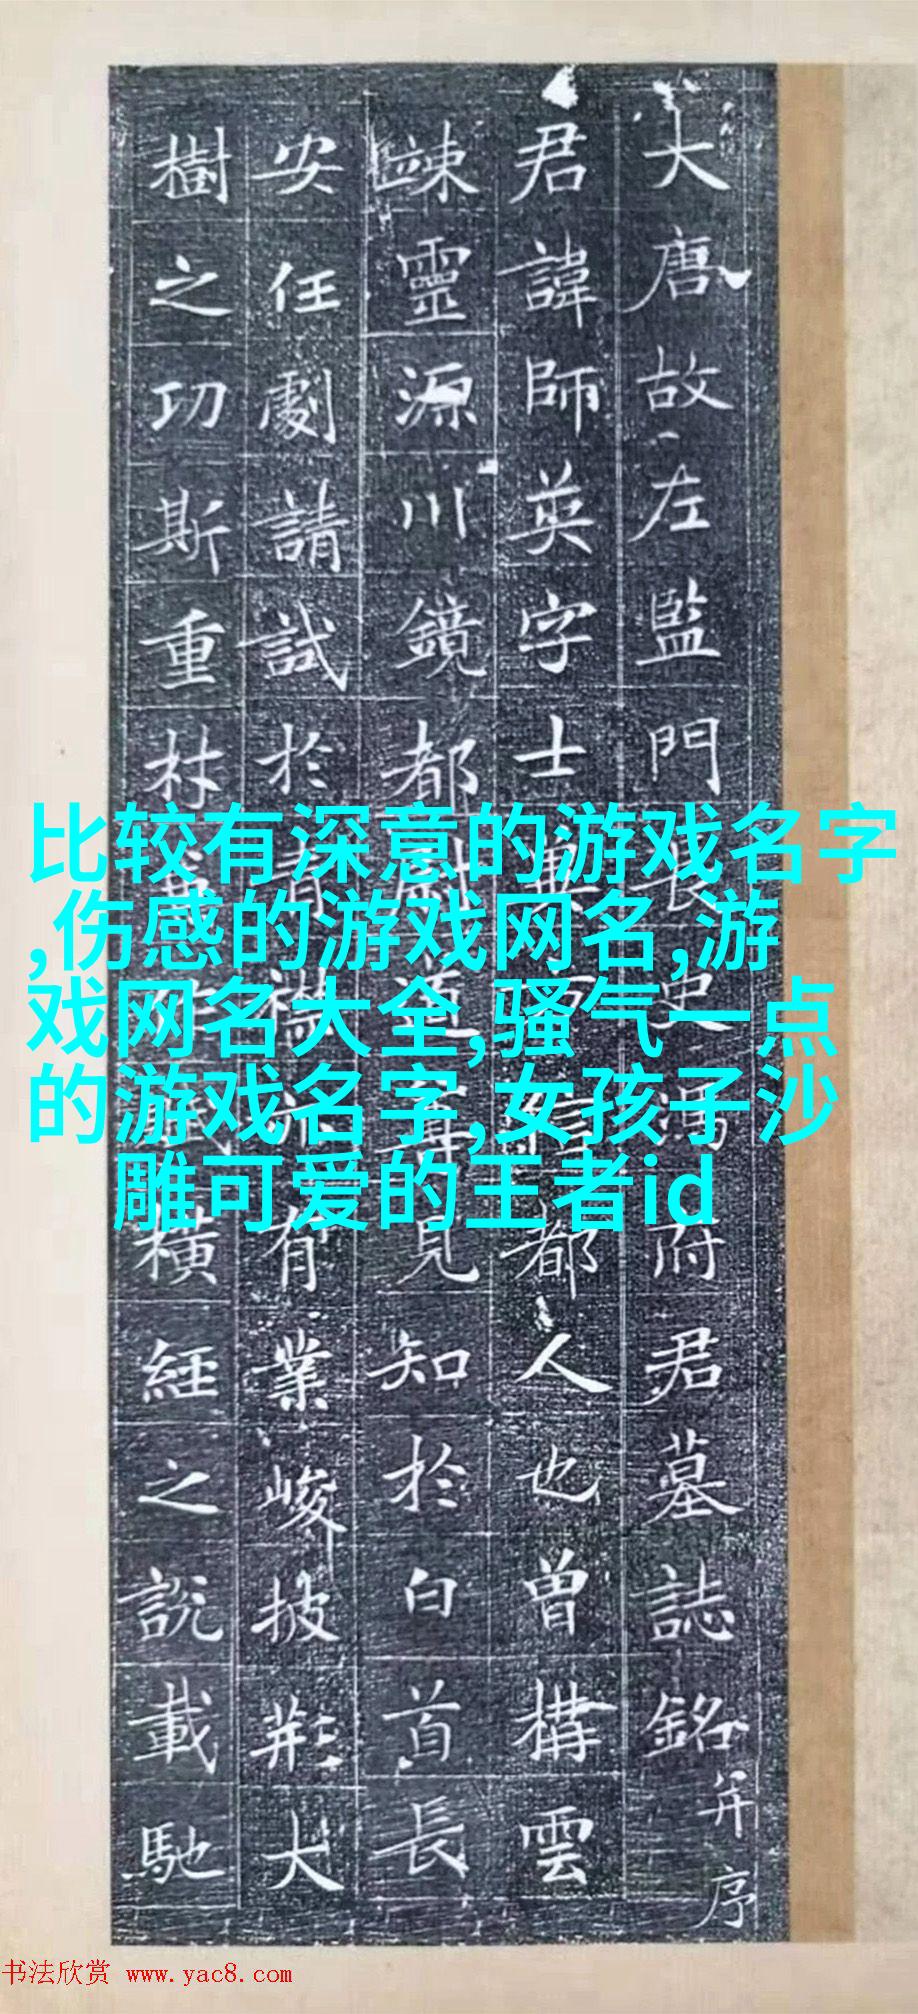 大唐故左監門長史馮府君墓誌銘并序
君諱師英字士兼都人也曾構雲
竦靈源川鏡都尉道見知於白首長
安任劇請試於青襟有業峻披荊大
樹之功斯重材橫經之說載馳
比较有深意的游戏名字
,伤感的游戏网名,游
戏网名大全,骚气一点
的游戏名字,女孩子沙
雕可爱的王者id
书法欣赏 www.yac8.com